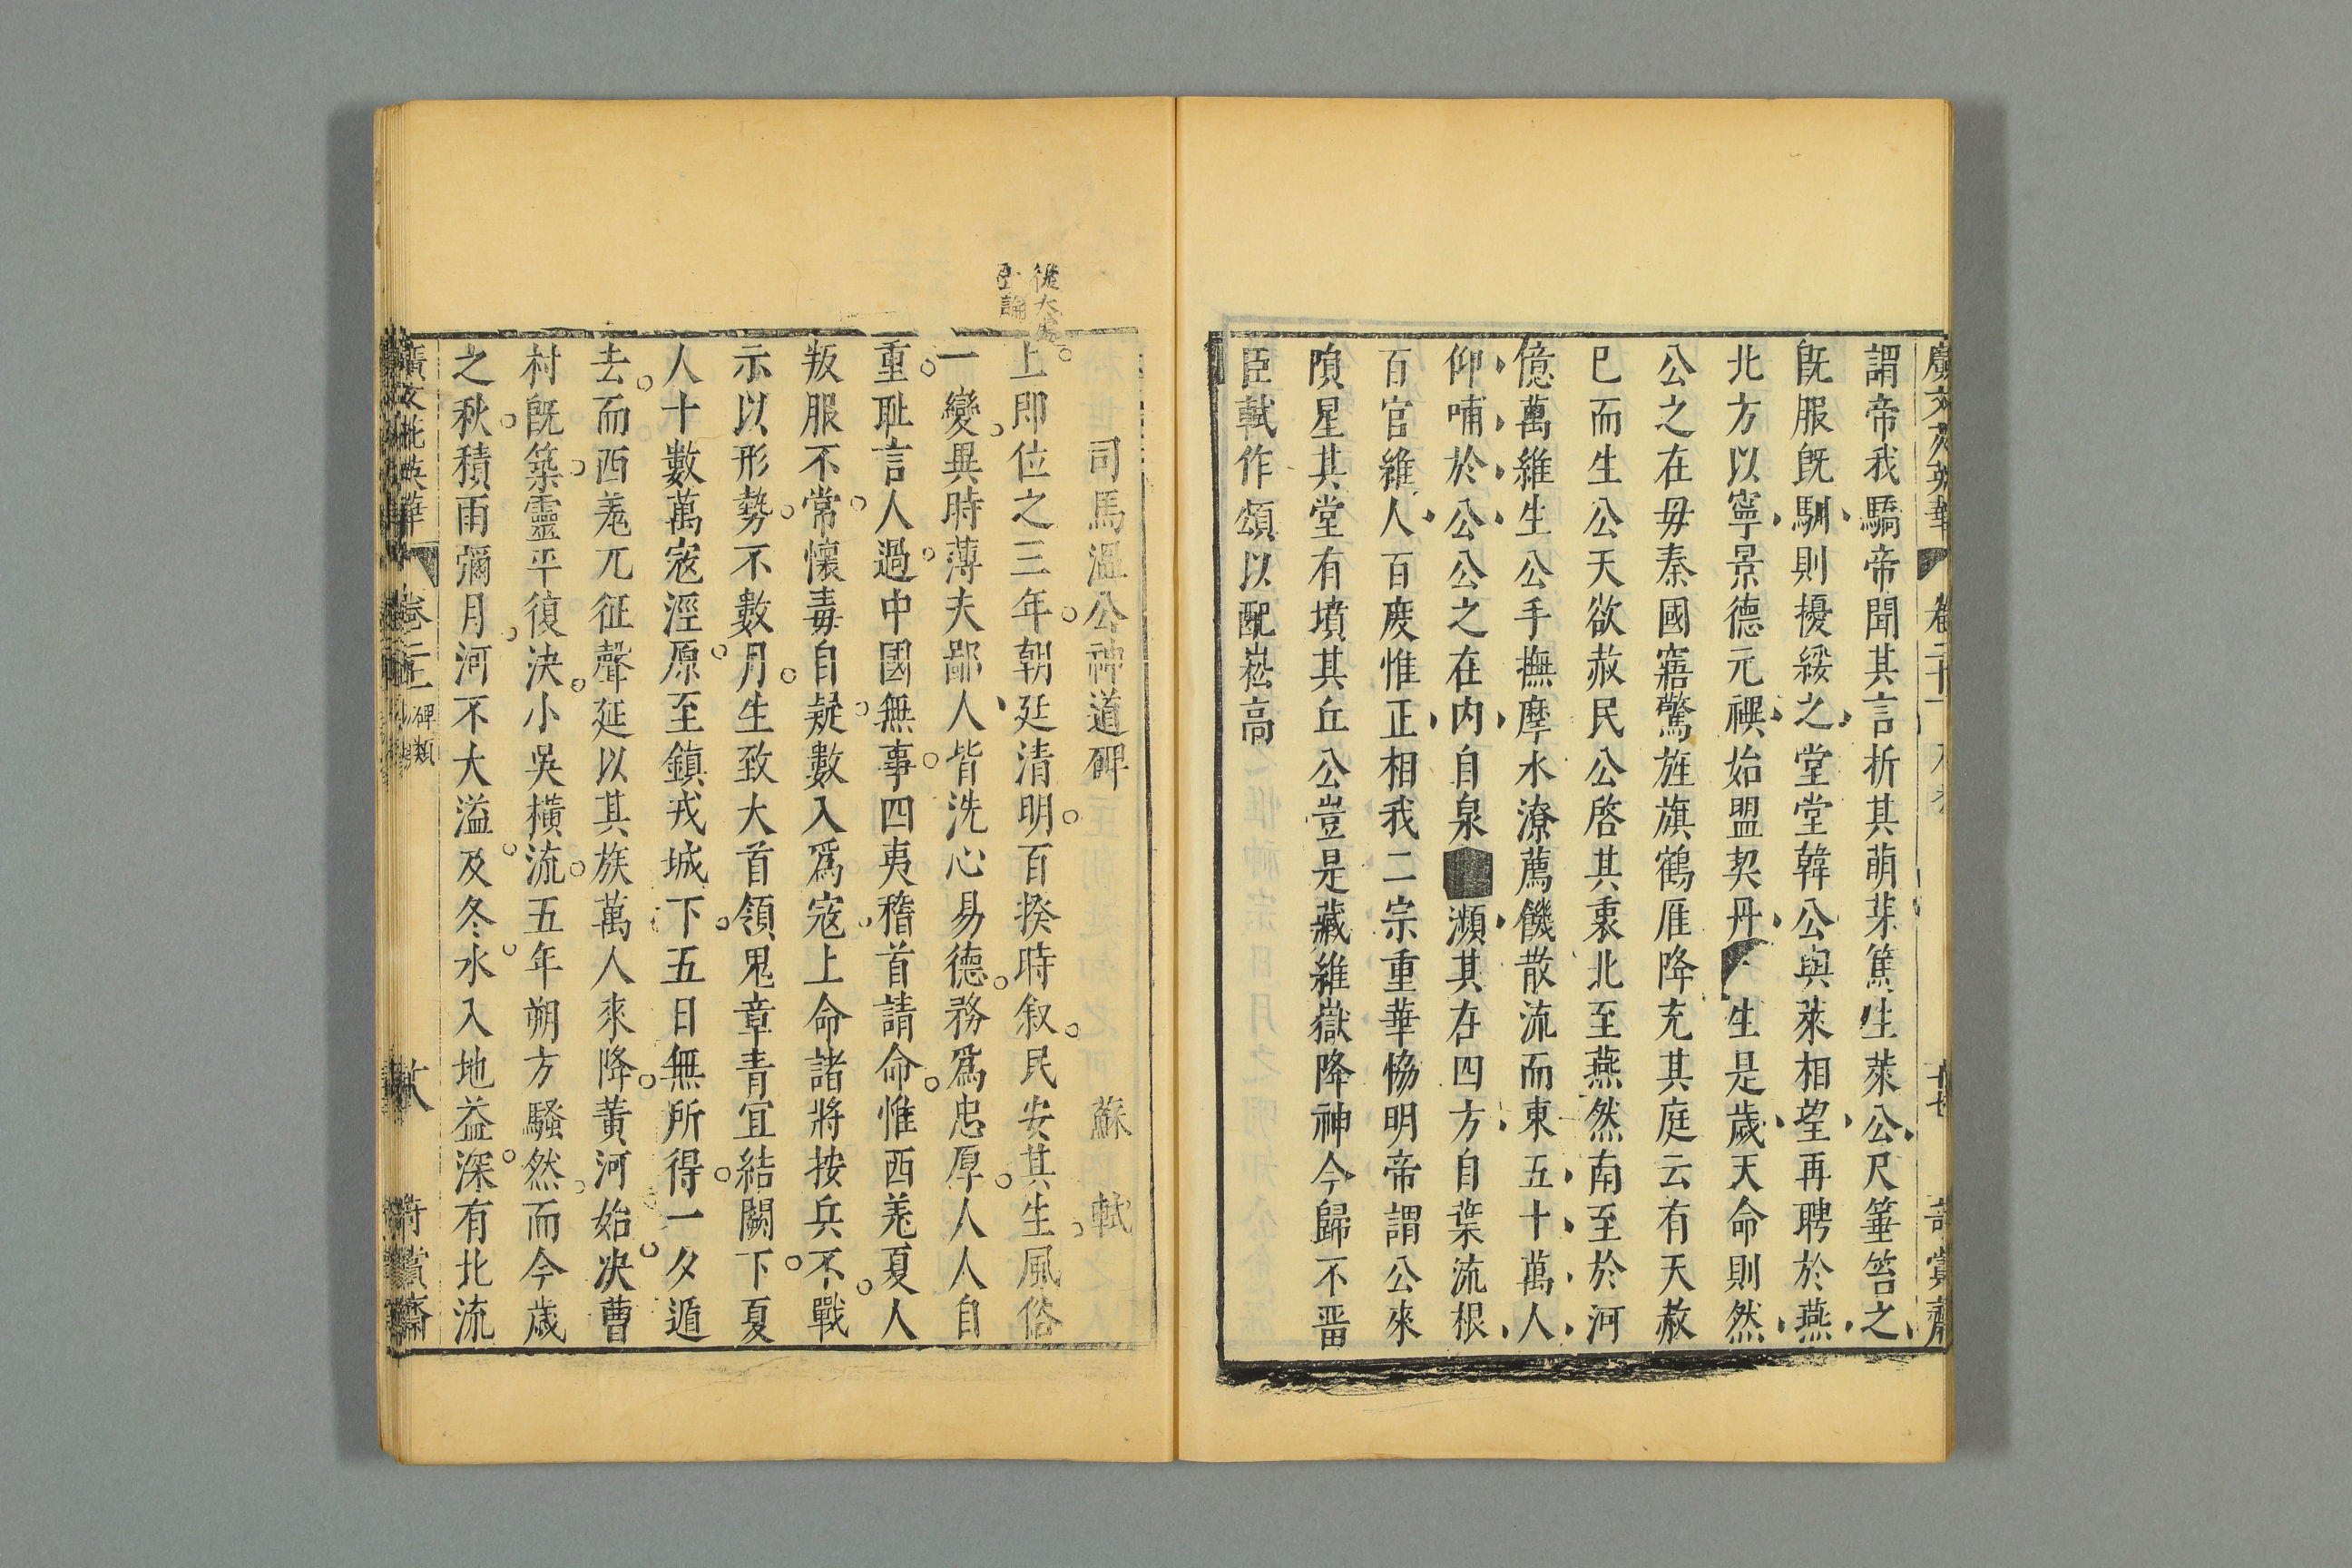 謂帝我驕帝聞其言折其萌芽篤生萊公尺箠笞之
旣服旣馴則擾綏之堂堂韓公與萊相望再聘於燕
北方以寧景德元禩始盟契丹生是歲天命則然
公之在毋秦國寤驚旌旗鶴雁降充其庭云有天赦
巳而生公天欲赦民公啓其衷北至燕然南至於河
億萬維生公手撫摩水潦薦饑散流而東五十萬人
仰哺於公公之在內自泉瀕其在四方自葉流根
百官維人百度惟正相我二宗重華恊明帝謂公來
隕星其堂有墳其丘公豈是藏維嶽降神今歸不畱
臣軾作頌以配崧高
從大處
立論
司馬溫公神道碑 蘇軾
上即位之三年朝廷清明百揆時叙民安其生風俗
一變異時薄夫鄙人皆洗心易德務爲忠厚人人自
重耻言人過中國無事四夷稽首請命惟西羗夏人
叛服不常懷毒自疑數入爲寇上命諸將按兵不戰
示以形勢不數月生致大首領鬼章青宜結闕下夏
人十數萬寇涇原至鎮戎城下五日無所得一夕遁
去而西羗兀征聲延以其族萬人來降黃河始决曹
村旣築靈平復決小吳橫流五年朔方騷然而今歲
之秋積雨彌月河不大溢及冬水入地益深有北流
廣文苑英華 卷二十一 碑類